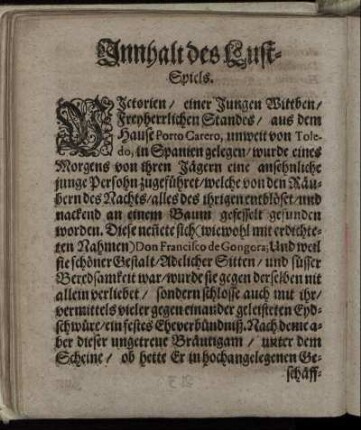 Innhalt des Lust-
Spiels.
VIctorien / einer Jungen Wittben /
Freyherrlichen Standes / aus dem
Hause Porto Carero, unweit von Tole-
do, in Spanien gelegen / wurde eines
Morgens von ihren Jägern eine ansehnliche
junge Persohn zugeführet / welche von den Räu-
bern des Nachts / alles des ihrigen entblöset / und
nackend an einem Baum gefesselt gefunden
worden. Diese neñete sich (wiewohl mit erdichte-
ten Nahmen) Don Francisco de Gongora; Und weil
sie schöner Gestalt / Adelicher Sitten / und süsser
Beredsamkeit war / wurde sie gegen derselben nit
allein verliebet / sondern schlosse auch mit ihr /
vermittels vieler gegen einander geleisteten Eyd-
schwüre / ein festes Eheverbündniß. Nach deme a-
ber dieser ungetreue Bräutigam / unter dem
Scheine / ob hette Er in hochangelegenen Ge-
schäff-